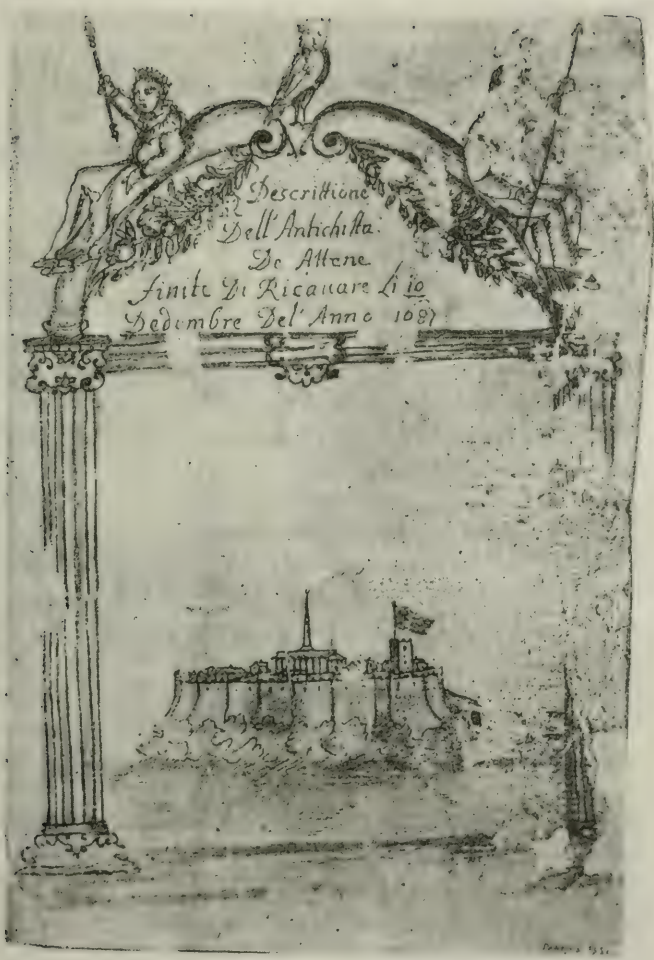 Descrittione
Dell'Antichitta
De Attene
finite Di Ricauare Li 10
Dedembre Del' Anno 1687